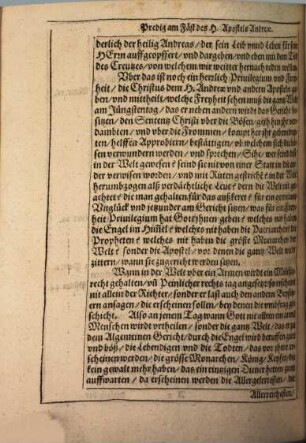 Predig am Fäst deß H. Apostels Andreæ.
derlich der heilig Andreas / der sein Leib vnnd Leben für sein
HErrn auffgeopffert / vnd dargeben / vnd eben mit den Tod
des Creutzes / von welchem wir weitter hernach reden wellen.
Vber das ist noch ein herrlich Priuilegium vnd Frey=
heit / die Christus dem H. Andreæ vnd andern Aposteln ge=
ben / vnd mittheilt / welche Freyheit sehen muß die gantz Welt
am Jüngstentag / das er neben andern wirdt das Gericht be=
sitzen / den Sententz Christi vber die Bösen /
dambten / vnd vber die Frommen /
helffen Approbiern / bestättigen / ob welchem sich die
sen verwundern werden / vnd sprechen / Sihe / wer seind die
in der Welt gewesen / seind sie nit von einer Statt in die an=
der verwisen worden / vnd mit Ruten gestrichen / in der Welt
herumbzogen als verdächtliche Leut / deren die Welt nit ge=
achtet / die man gehalten für das
Vnglück / vnd jetzunder am Gericht sitzen / was für ein
heit Priuilegium hat Gott jhnen geben / welches nit haben
die Engel im Himel / welches nit haben die Patriarchen die
Propheten / welches nit haben die grösse Monarchen der
Welt / sonder die Apostel / vor denen die gantz Welt wirdt
zittern / wann sie zugericht werden sitzen.
Wann in der Welt vber ein Armen wirdt ein Malefitz=
recht gehalten / vñ Peinlicher rechts tag angesetzt / so erscheint
nit allein der Richter / sonder er last auch den andern Beysi=
tzern ansagen / die erscheinen sollen / bey denen die
schicht. Also an jenem Tag wann Gott nit allein ein armen
Menschen wirdt vrtheilen / sonder die gantz Welt / das
dem Algemeinen Gericht / durch die Engel wird beruffen gut
vnd böß / die Lebendigen vnd die Todten / das vor jhm er=
scheinen werden / die grösse Monarchen / König / Keyser / die
kein gewalt mehr haben / das ein einzigen Diener hetten zum
auffwarten / da erscheinen werden die Allergelertisten / die
Allerreichesten /